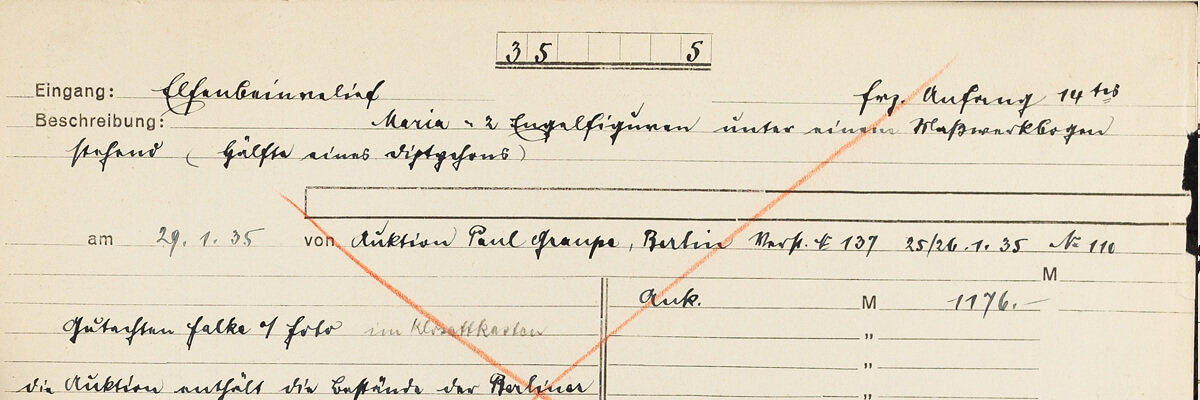 35 5
Eingang: Elfenbeinrelief frz. Anfang 14tes
Beschreibung: Maria - 2 Engelfiguren unter einem Maßwerkbogen
stehend ( Hälfte eines Diptychons)
am 29. 1. 35 von Auktion Paul Graupe, Berlin Verst. 137 25/26. 1. 35 № 110
M
Ank. M 1176.—
Gutachten Falke a/ Foto im
"
"
die Auktion enthält die Bestände der Berliner "